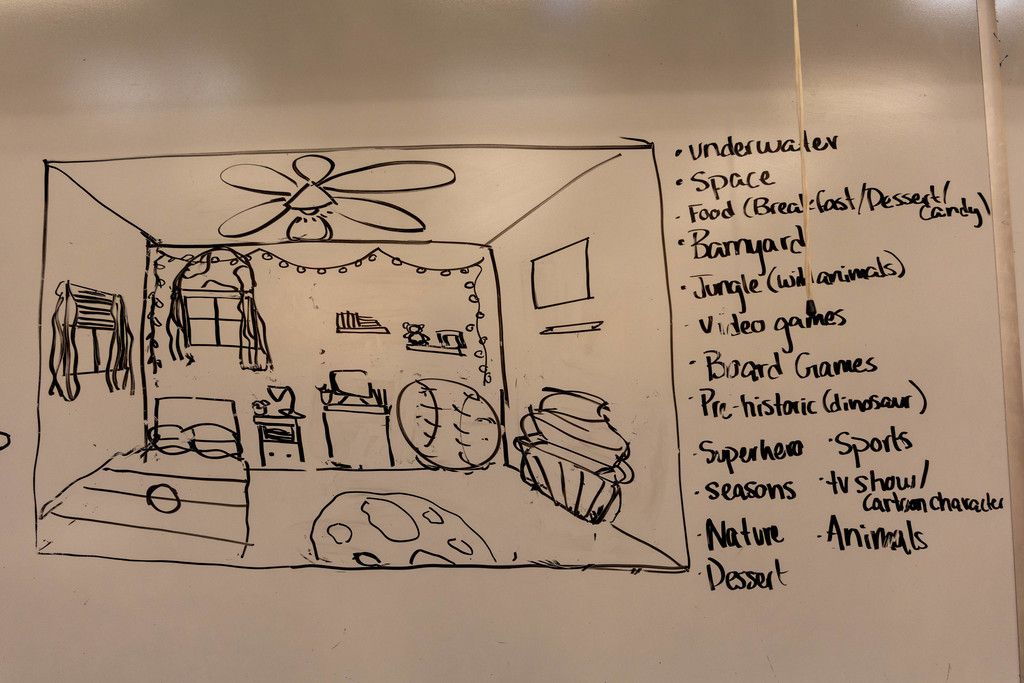 • underwater
• Space
- Food (Breakfast/Dessert/
Candy)
• Barnyard
• Jungle (with animals)
- Video games
• Board Games
• Pre-historic (dinosaur)
· Superhero · Sports
· seasons · tv show/
cartoon character
· Nature · Animals
· Dessert